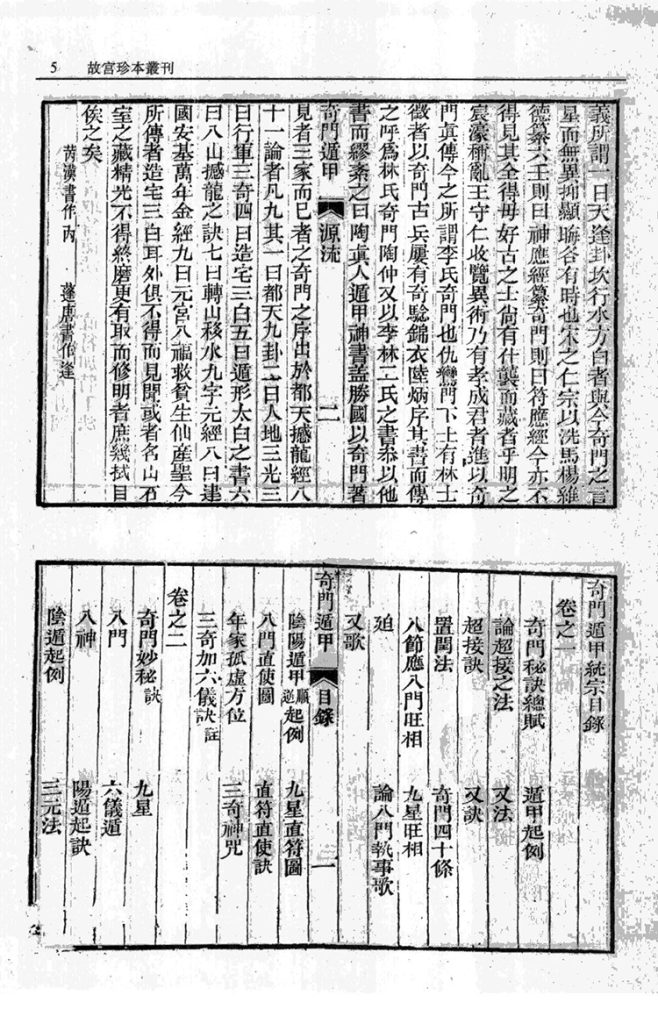 5 故宮珍本叢刊
義所謂一曰天逢卦坎行水方白者與今奇門之言
星而無異抑顯晦各有時也宋之仁宗以洗馬楊維
德纂六壬則曰神應經纂奇門則曰符應經今亦不
得見其全得毋好古之士尚有什襲而藏者乎明之
宸濠稱亂王守仁收覽異術乃有李成君者進以奇
門眞傳今之所謂李氏奇門也仇鸞門下士有林士
徵者以奇門占兵屢有奇驗錦衣陸炳序其書而傳
之呼爲林氏奇門陶仲又以李林二氏之書叅以他
書而繆紊之曰陶眞人遁甲神書蓋勝國以奇門著
奇門遁甲 源流 二
見者三家而已者之奇門之序出於都天撼龍經八
十一論者凡九其一曰都天九卦二曰人地三光三
曰行軍三奇四曰造宅三白五曰遁形太白之書六
曰八山撼龍之訣七曰轉山移水九字元經八曰建
國安基萬年金經九曰元宮八福救貧生仙產聖今
所傳者造宅三白耳外俱不得而見聞或者名山石
室之藏精光不得終磨更有取而修明者庶幾拭目
俟之矣
芮漢書作內 蓬唐書作逢
奇門遁甲統宗目錄
卷之一
奇門秘訣總賦 遁甲起例
論超接之法 又法
超接訣 又訣
置閏法 奇門四十條
八節應八門旺相 九星旺相
廹 論八門執事歌
又歌
奇門遁甲 目錄 一
陰陽遁甲順逆起例 九星直符圖
八門直使圖 直符直使訣
年家孤虛方位 三奇神咒
三奇加六儀訣註
卷之二
奇門妙秘訣 九星
八門 六儀遁
八神 陽遁起訣
陰遁起例 三元法